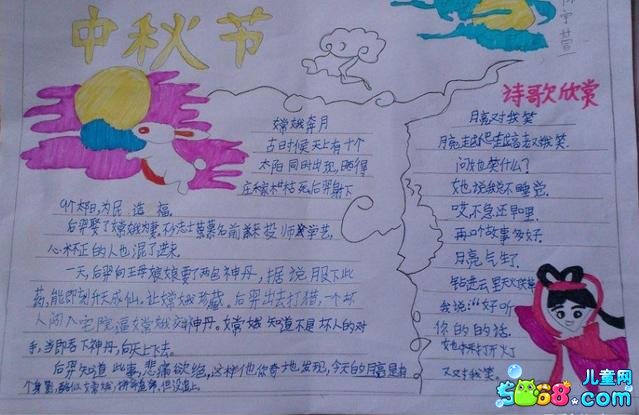 中秋节
嫦娥奔月
古时候天上有十个
太阳同时出现,晒得
庄稼枯死,后羿射下
9个太阳,为民造福。
后羿娶了嫦娥为妻,不少志士慕名前来投师学艺,
心术不正的人也混了进来
一天,后羿向王母娘娘要了两包神丹,据说服下此
药,能即刻升天成仙。让嫦娥珍藏。后羿出去打猎,一个坏
人闯入宅院逼嫦娥交神丹。嫦娥知道不是坏人的对
手,当即吞下神丹,向天上飞去。
后羿知道此事,悲痛欲绝,这样他惊奇地发现,今天的月亮里有
个身影,
诗歌欣赏
月亮对我笑
月亮走进对我笑
问她笑什么?
她说我不睡觉
哎,不急还早哩
再听故事多好
月亮气生了
钻进云里
我说:“好听
你的的话
打开灯
又对我笑
5068.com
儿童网